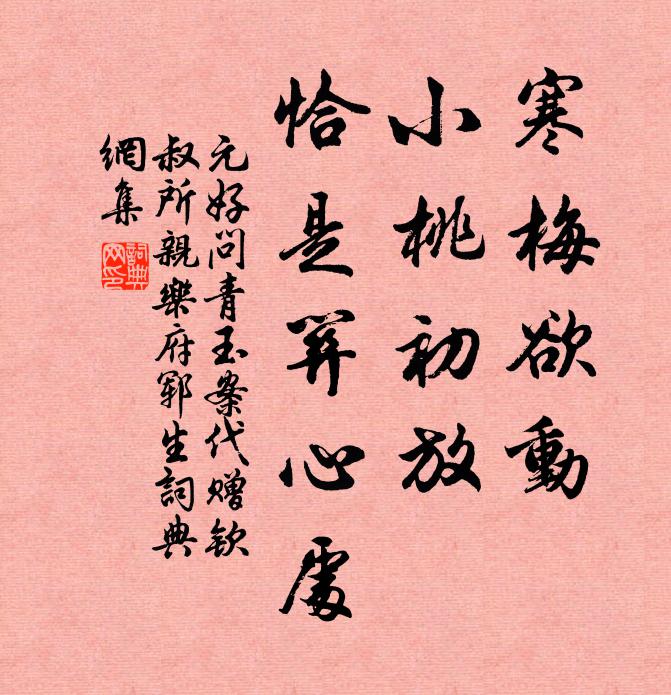 寒梅欲動
小桃初放
恰是關心處
元好問青玉案代贈欽
叔所親樂府鄆生詞典
網集
詞典
网印